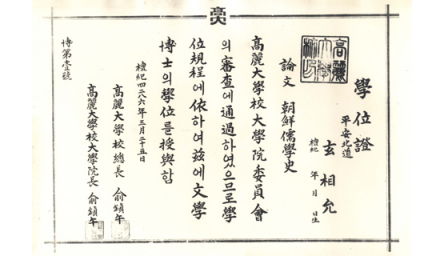 高大
學位證
平安北道
玄相允
檀紀 年 月 日生
論文 朝鮮儒學史
高麗大學校大學院委員會
의審査에通過하였으므로學
位規程에依하여玆에文學
博士의學位를授與함
檀紀四二八六年三月二十五日
高麗大學校總長 俞鎭午
高麗大學校大學院長 俞鎭午
博第壹號